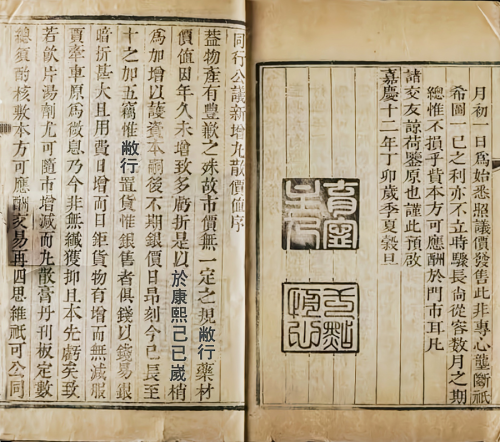 同行公議新增丸散價值序
蓋物產有豐歉之殊故市價無一定之規敝行藥材
價值因年久未增致多虧折是以於康熙己巳歲稍
為加增以護資本嗣後不期銀價日昂刻今已長至
十之加五竊惟敝行置貨惟銀售者俱錢以錢易銀
暗折甚大且用費日增而日鉅貨物有增而無減服
賈牽車原為微息乃今非無纖獲抑且本先虧矣致
若飲片湯劑尤可隨市增減而丸散膏丹刊板定數
總須酌核敷本方可應酬交易再四思維祇可公同
月初一日為始悉照議價發售此非專心壟斷祇
希圖一己之利亦不立時驟長尚從容數月之期
總惟不損乎貲本方可應酬於門市耳凡
諸交友諒荷鑒原也謹此預啟
嘉慶十二年丁卯歲季夏穀旦